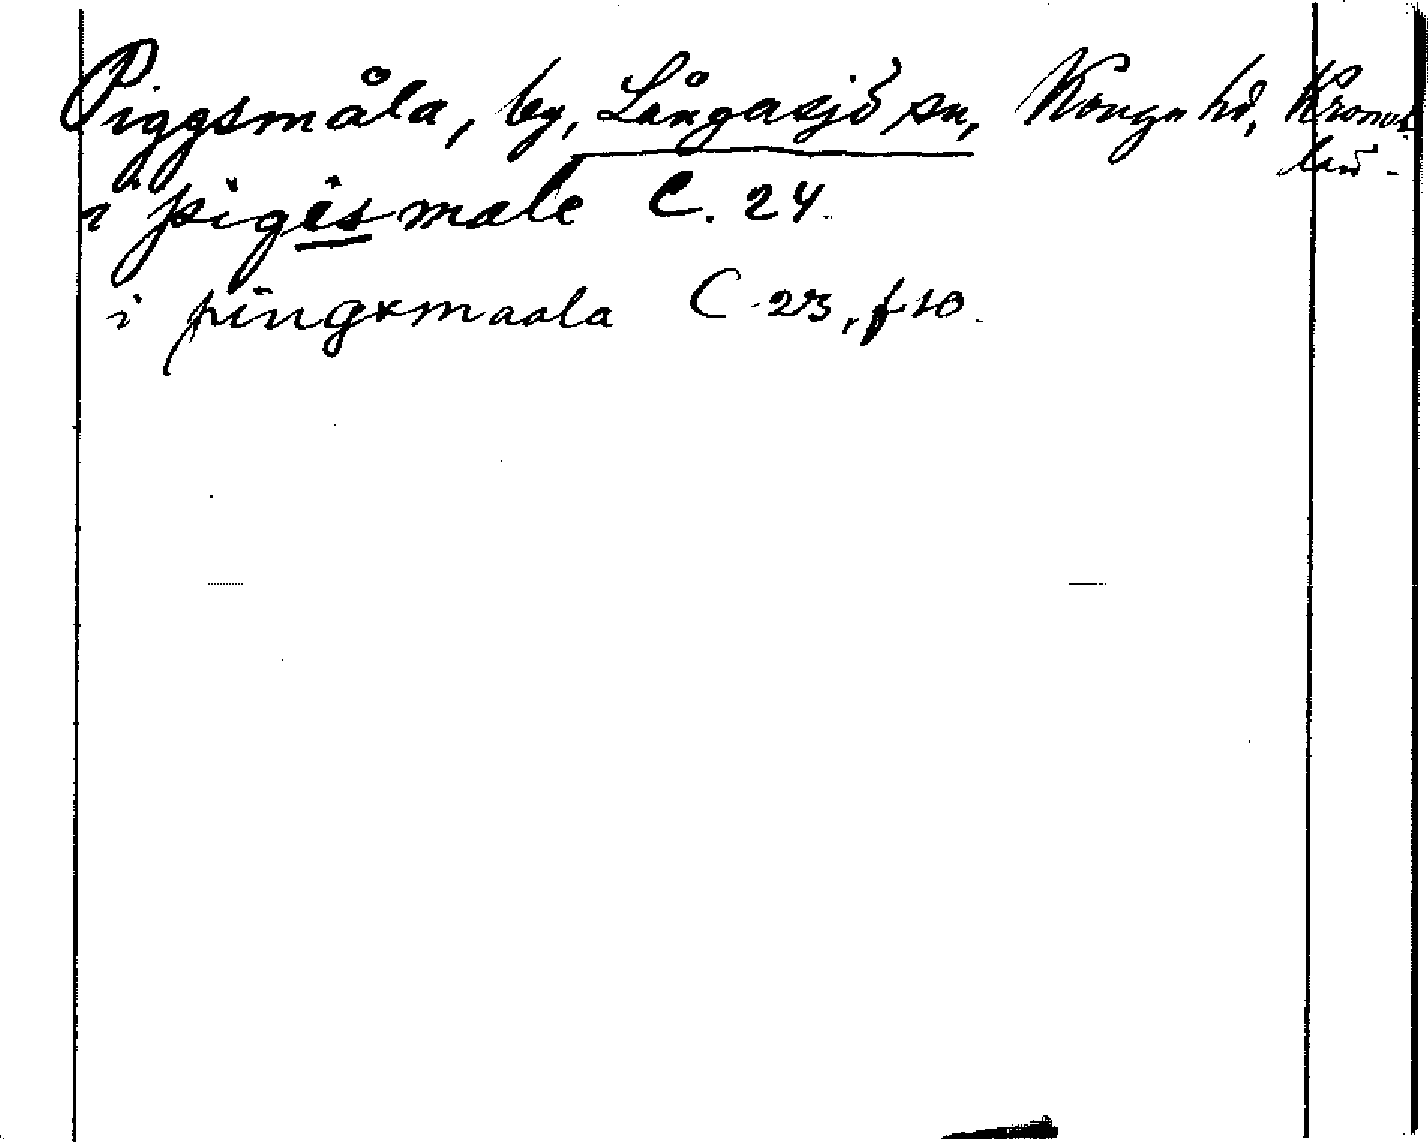 Piggsmåla, by, Långasjö sn, Konga hd, Kronob.
län.
i pigismale C. 24.
i pingxmaala C 23, f 10.